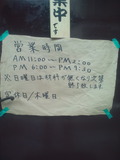 業中です
営業時間
AM11:00〜PM2:00
PM6:00〜PM9:30
※日曜日は材料が無くなり次第
終了致します
定休日/木曜日